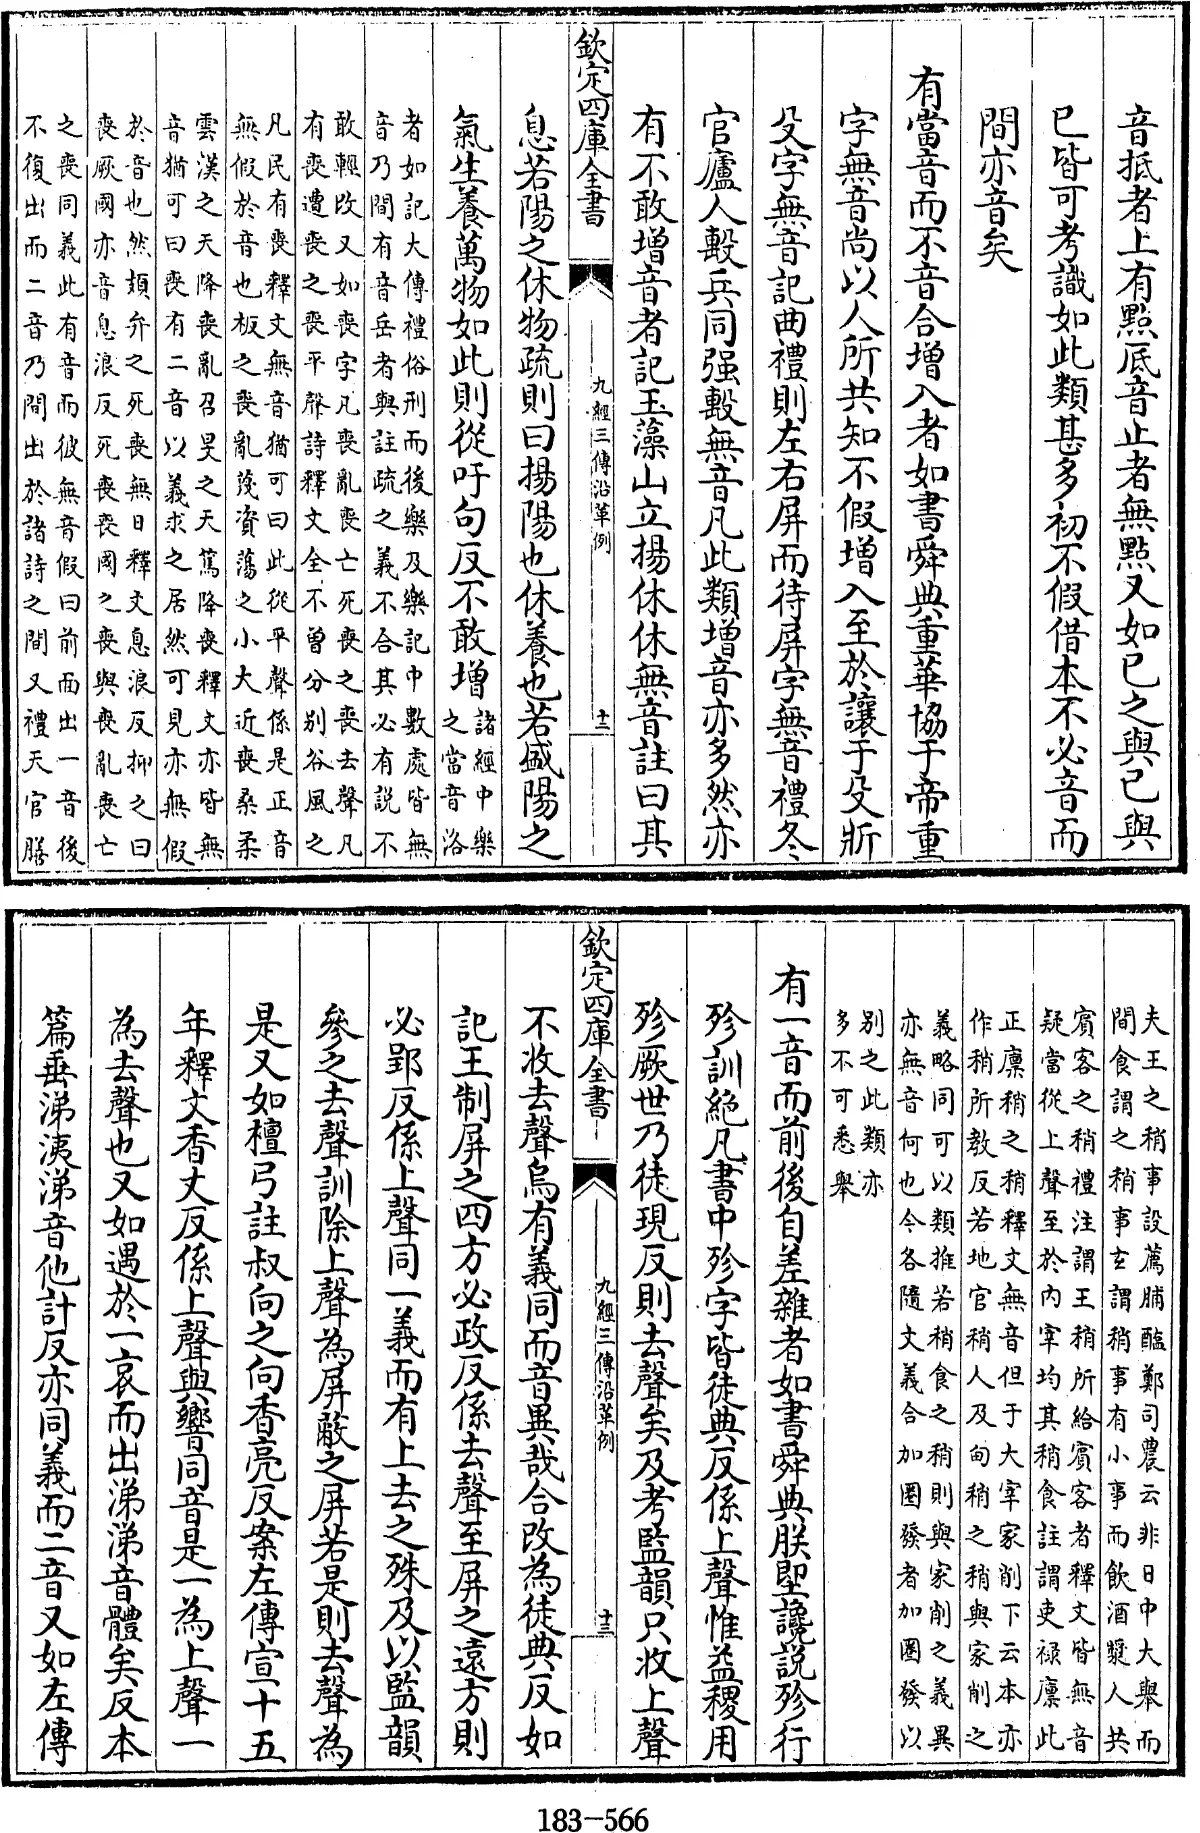 音抵者上有點底音止者無點又如已之與己與
巳皆可考識如此類甚多初不假借本不必音而
間亦音矣
有當音而不音合増入者如書舜典重華協于帝重
字無音尚以人所共知不假増入至於讓于殳斨
殳字無音記曲禮則左右屏而待屏字無音禮冬
官廬人轂兵同强轂無音凡此類増音亦多然亦
有不敢増音者記玉藻山立揚休休無音註曰其
欽定四庫全書
九經三傳沿革例
十二
息若陽之休物疏則曰揚陽也休養也若盛陽之
氣生養萬物如此則從吁句反不敢増諸經中樂
之當音洛
者如記大傳禮俗刑而後樂及樂記中數處皆無
音乃間有音岳者與註疏之義不合其必有説不
敢輕改又如喪字凡喪亂喪亡死喪之喪去聲凡
有喪遭喪之喪平聲詩釋文全不曾分别谷風之
凡民有喪釋文無音猶可曰此從平聲係是正音
無假於音也板之喪亂蔑資蕩之小大近喪桑柔
雲漢之天降喪亂召旻之天篤降喪釋文亦皆無
音猶可曰喪有二音以義求之居然可見亦無假
於音也然頍弁之死喪無日釋文息浪反抑之曰
喪厥國亦音息浪反死喪喪國之喪與喪亂喪亡
之喪同義此有音而彼無音假曰前面出一音後
不復出而二音乃間出於諸詩之間又禮天官膳
夫王之稍事設薦脯醢鄭司農云非日中大舉而
間食謂之稍事玄謂稍事有小事而飲酒漿人共
賓客之稍禮注謂王稍所給賓客者釋文皆無音
疑當從上聲至於内宰均其稍食註謂吏禄廪此
正廪稍之稍釋文無音但于大宰家削下云本亦
作稍所教反若地官稍人及甸稍之稍與家削之
義略同可以類推若稍食之稍則與家削之義異
亦無音何也今各隨文義合加圈發者加圈發以
别之此類亦
多不可悉舉
有一音而前後自差雜者如書舜典朕堲讒説殄行
殄訓絶凡書中殄字皆徒典反係上聲惟益稷用
殄厥世乃徒現反則去聲矣及考監韻只收上聲
欽定四庫全書
九經三傳沿革例
十三
不收去聲烏有義同而音異哉合改為徒典反如
記王制屏之四方必政反係去聲至屏之遠方則
必郢反係上聲同一義而有上去之殊及以監韻
參之去聲訓除上聲為屏蔽之屏若是則去聲為
是又如檀弓註叔向之向香亮反案左傳宣十五
年釋文香丈反係上聲與響同音是一為上聲一
為去聲也又如遇於一哀而出涕涕音體矣反本
篇垂涕洟涕音他計反亦同義而二音又如左傳
183-566